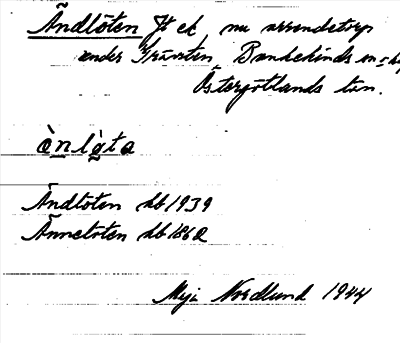 Ändlöten Jt ck, nu arrendetorp
under Grävsten, Bankekinds sn o hd
Östergötlands län.
ä̀nlø̀ta
Ändlöten Jb 1939
Ännelöten Jb 1862
Maja Nordlund 1944